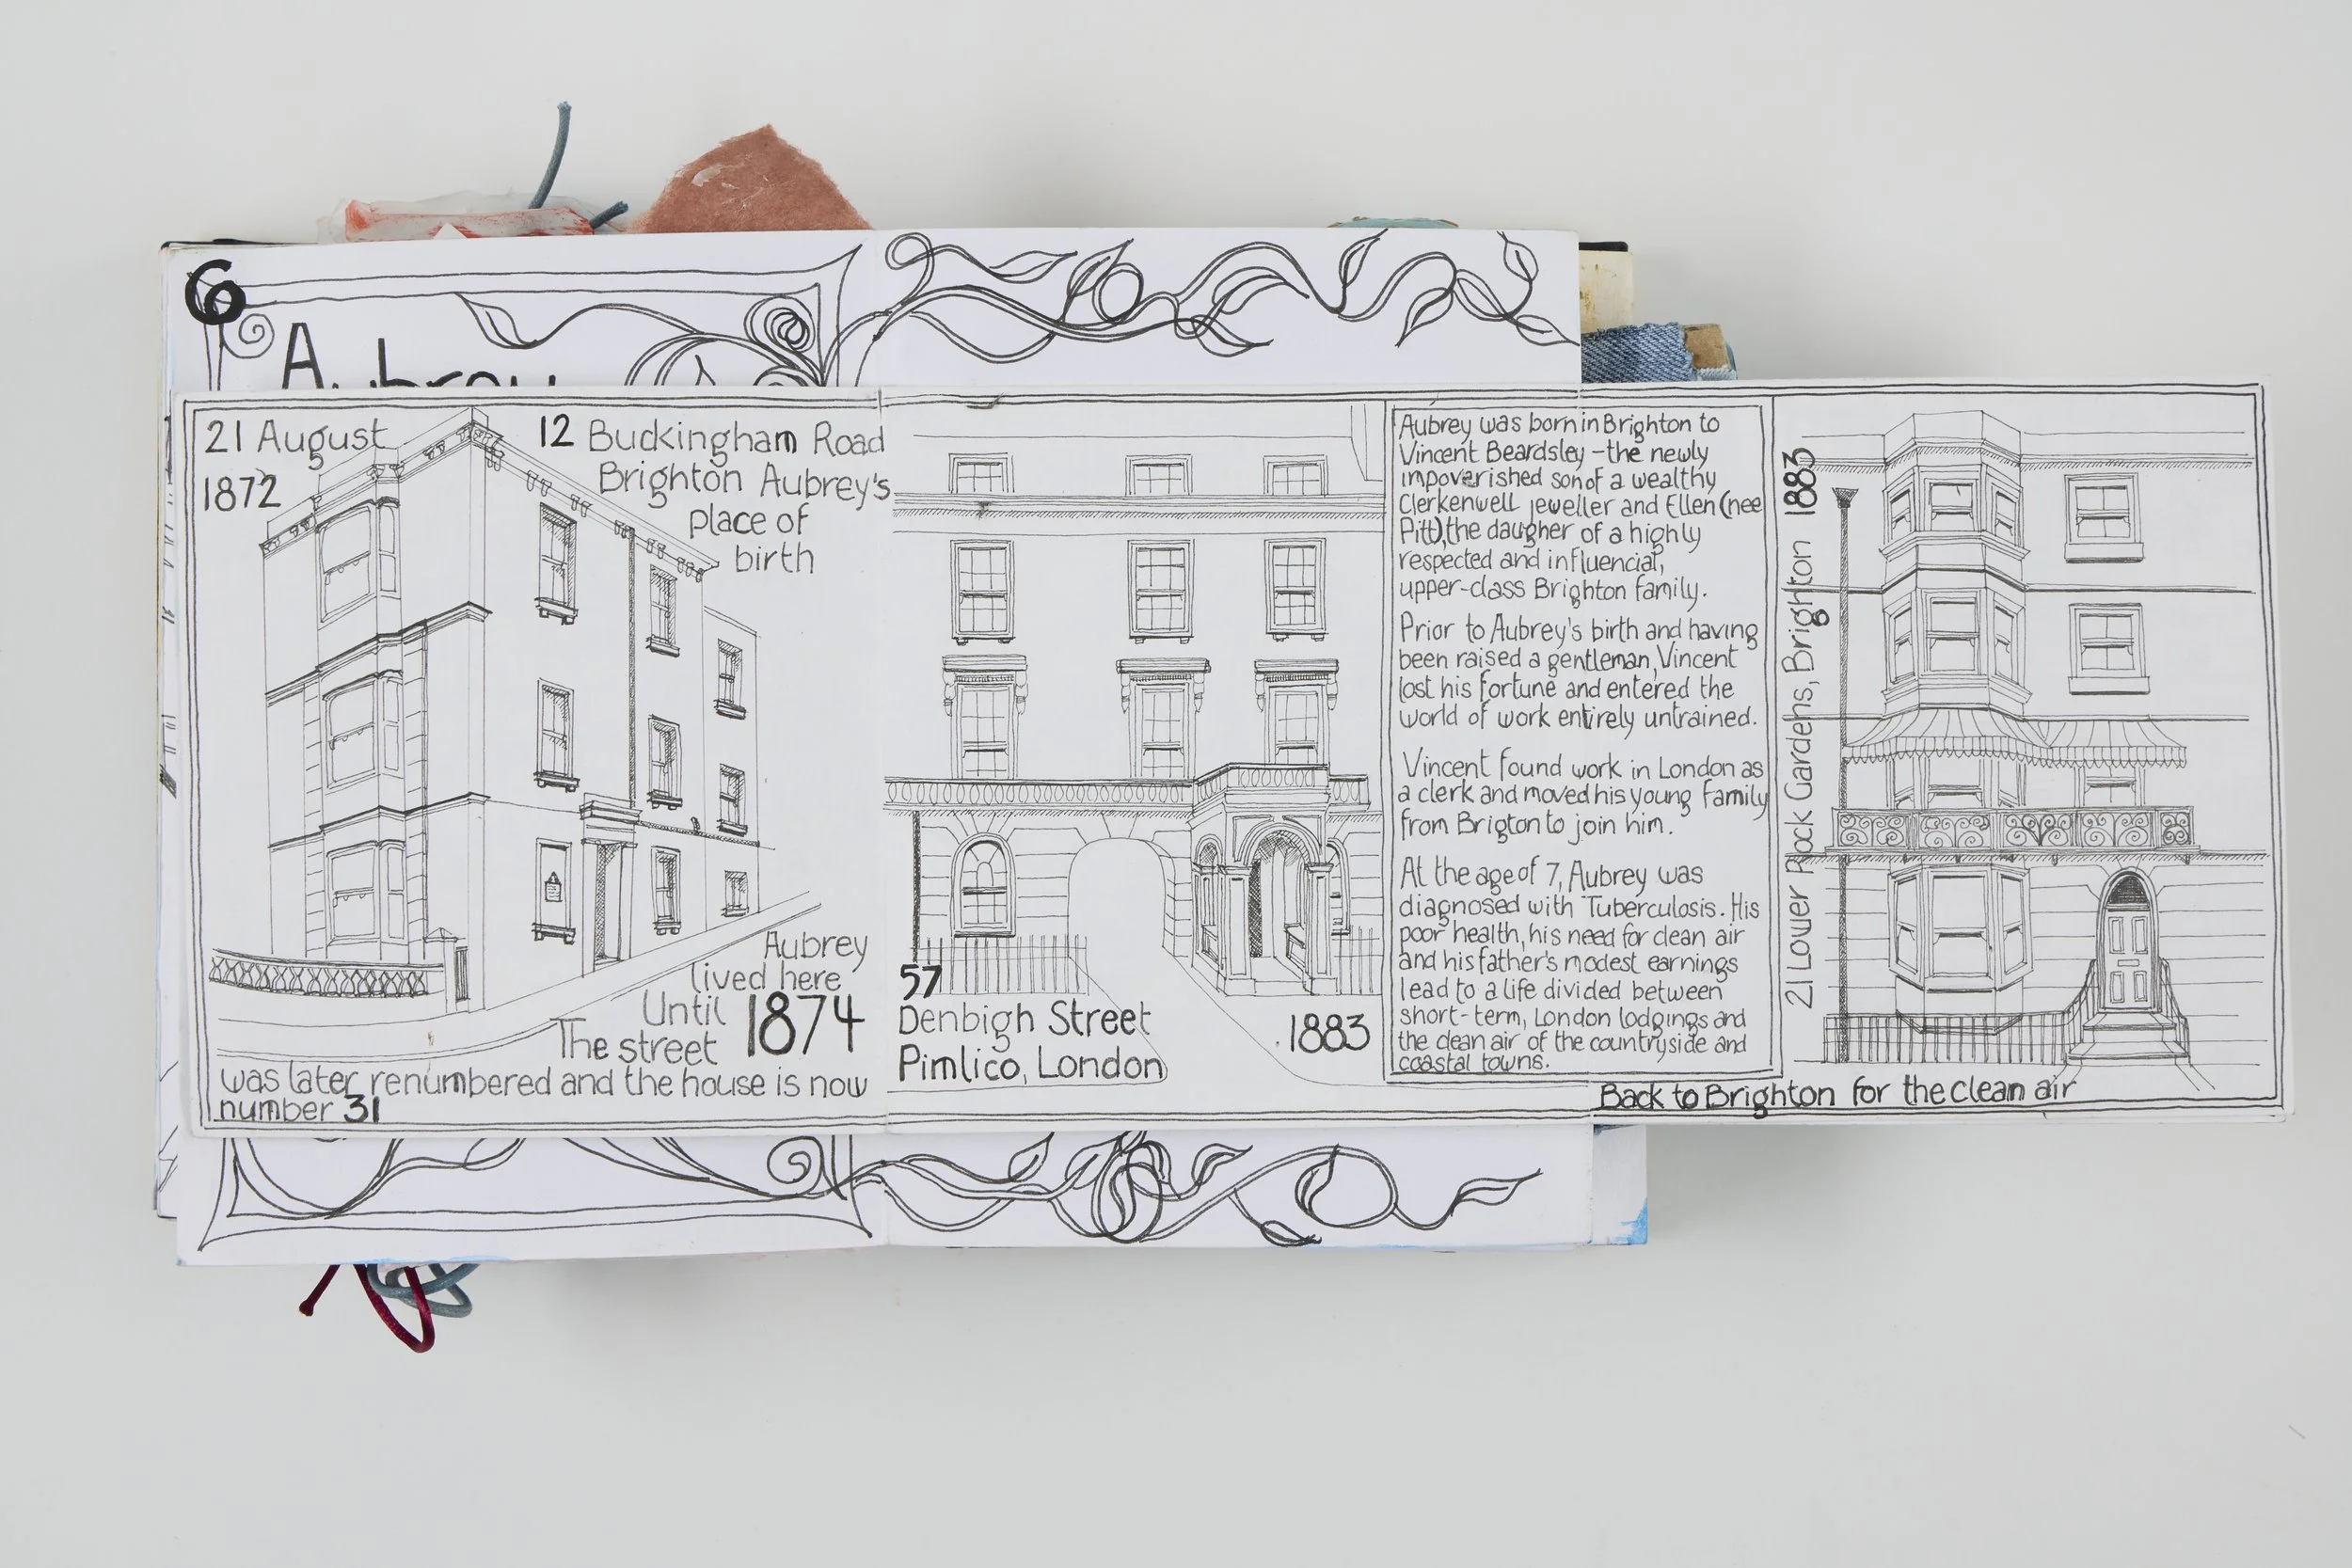 6
Aubrey
21 August
1872
12 Buckingham Road
Brighton Aubrey's
place of
birth
Aubrey
lived here
Until 1874
The street
was later renumbered and the house is now
number 31
57
Denbigh Street
Pimlico, London
1883
Aubrey was born in Brighton to
Vincent Beardsley - the newly
impoverished son of a wealthy
Clerkenwell jeweller and Ellen (nee
Pitt), the daugher of a highly
respected and influencial,
upper-class Brighton family.
Prior to Aubrey's birth and having
been raised a gentleman, Vincent
lost his fortune and entered the
world of work entirely untrained.
Vincent found work in London as
a clerk and moved his young family
from Brigton to join him.
At the age of 7, Aubrey was
diagnosed with Tuberculosis. His
poor health, his need for clean air
and his father's modest earnings
lead to a life divided between
short-term, London lodgings and
the clean air of the countryside and
coastal towns.
21 Lower Rock Gardens, Brighton 1883
Back to Brighton for the clean air